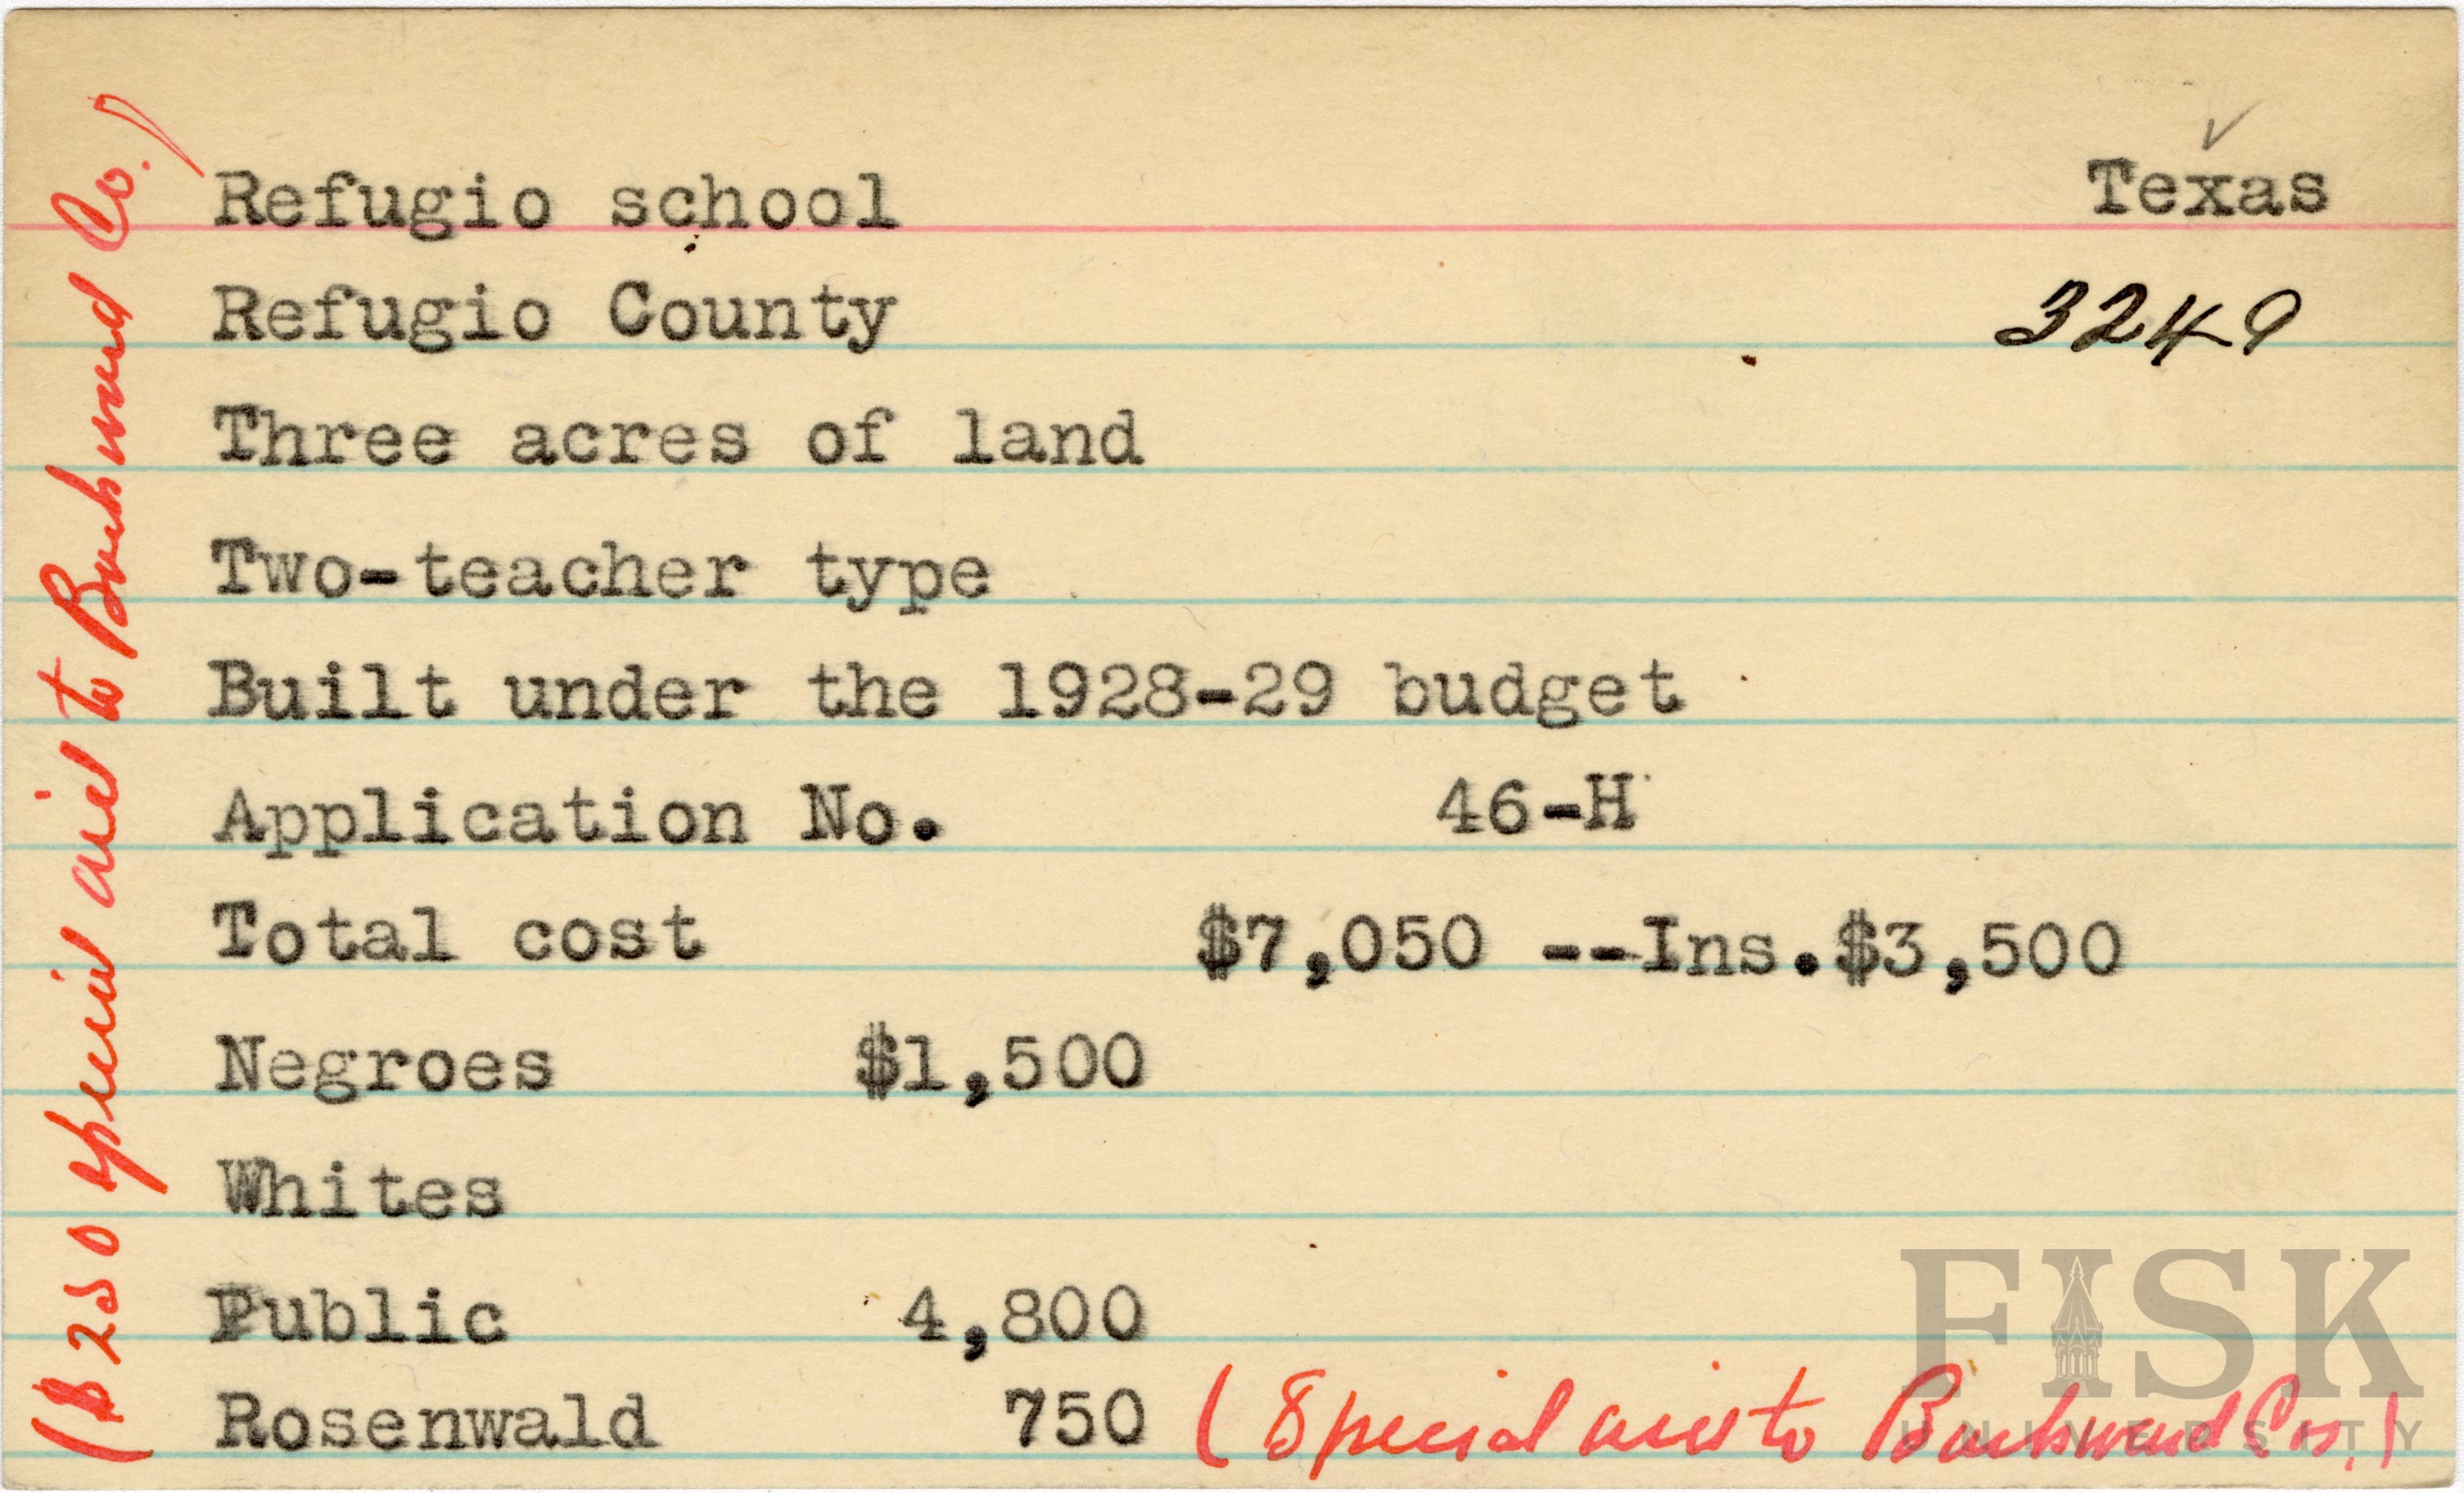 Refugio school
Texas
Refugio County
3249
Three acres of land
Two-teacher type
Built under the 1928-29 budget
Application No. 46-H
Total cost $7,050 --Ins.$3,500
Negroes $1,500
Whites
Public 4,800
Rosenwald 750 (Special aid to Backward Cos.)
($250 special aid to Backward Co.)
FISK
UNIVERSITY